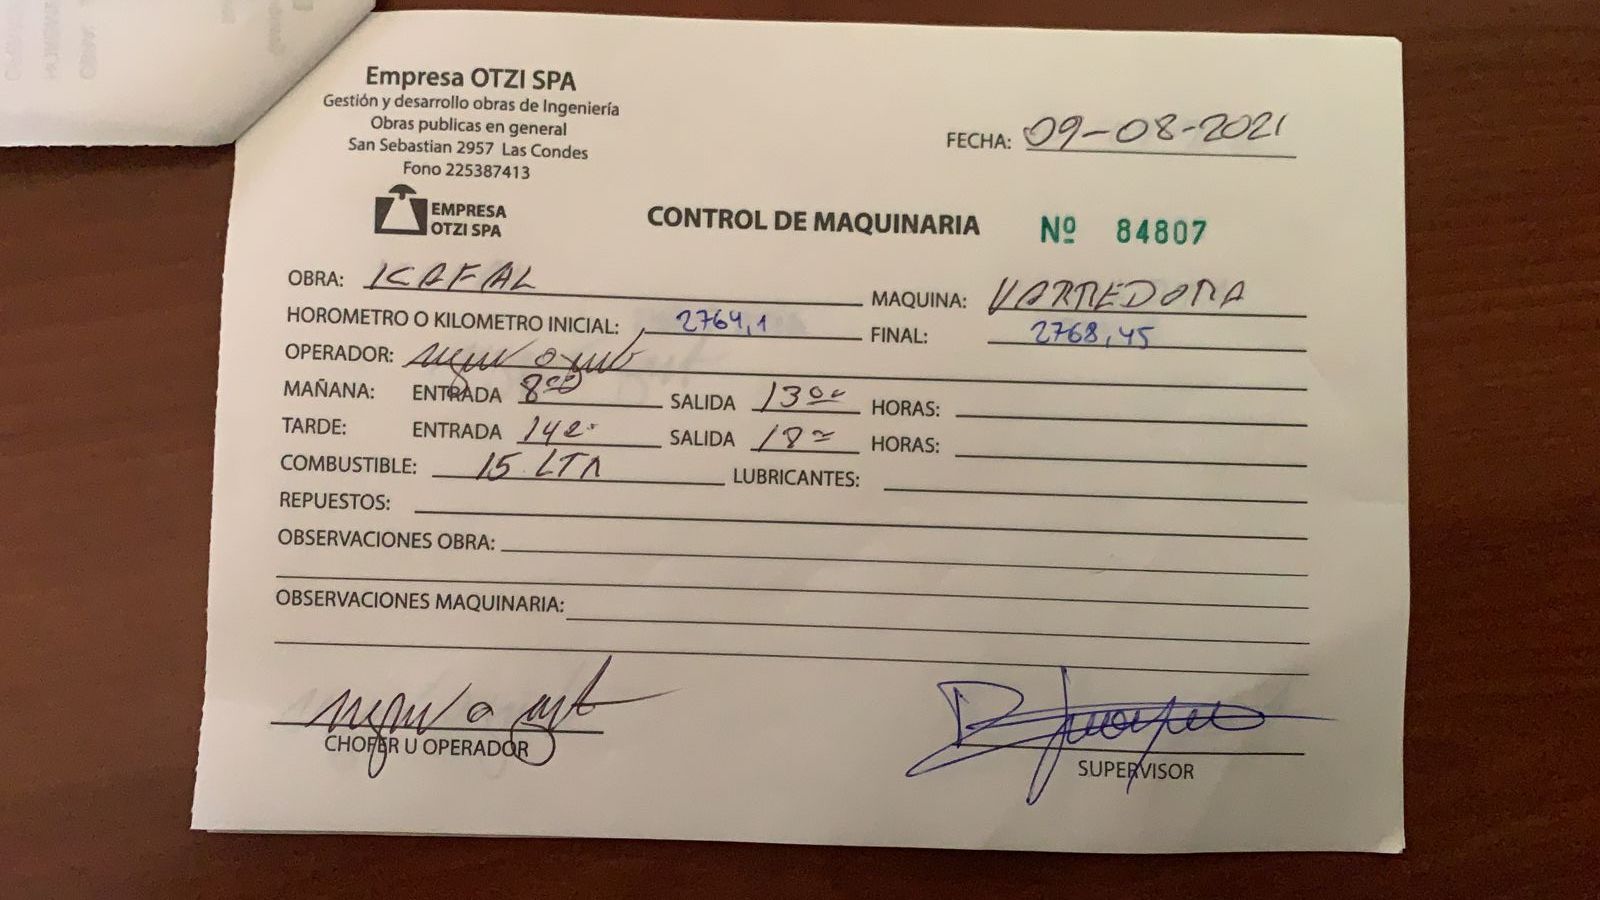 Empresa OTZI SPA
Gestión y desarrollo obras de Ingeniería
Obras publicas en general
San Sebastian 2957 Las Condes
Fono 225387413
FECHA: 09-08-2021
EMPRESA
OTZI SPA
CONTROL DE MAQUINARIA Nº 84807
OBRA: ICAFAL MAQUINA: VARREDORA
HOROMETRO O KILOMETRO INICIAL: 2764,1 FINAL: 2768,45
OPERADOR:
MAÑANA: ENTRADA 8:00 SALIDA 13:00 HORAS:
TARDE: ENTRADA 14:00 SALIDA 18:00 HORAS:
COMBUSTIBLE: 15 LTR LUBRICANTES:
REPUESTOS:
OBSERVACIONES OBRA:
OBSERVACIONES MAQUINARIA:
CHOFER U OPERADOR
SUPERVISOR